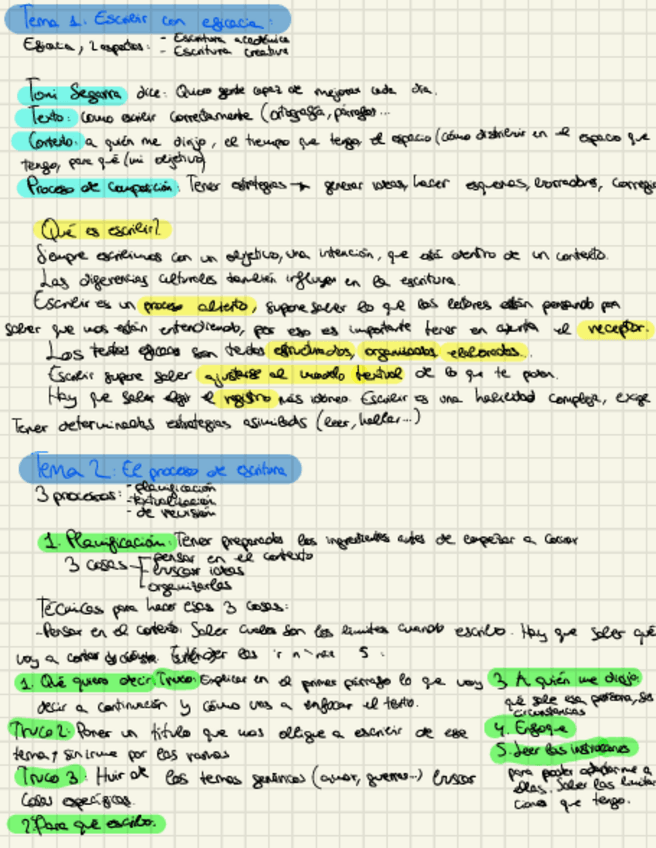 Tema 1: Escribir con eficacia:
Eficacia, 2 aspectos: - Escritura académica
- Escritura creativa
Toni Segarra dice: Quiero gente capaz de mejorar cada día.
Texto: como escribir correctamente (ortografía, párrafos...
Contexto: a quién me dirijo, el tiempo que tengo, el espacio (cómo distribuir en el espacio que
tengo, para qué (mi objetivo)
Proceso de composición: Tener estrategias → generar ideas, hacer esquemas, borradores, corregir
Qué es escribir?
Siempre escribimos con un objetivo, una intención, que está dentro de un contexto.
Las diferencias culturales también influyen en la escritura.
Escribir es un proceso abierto, supone saber lo que los lectores están pensando para
saber que nos están entendiendo, por eso es importante tener en cuenta el receptor.
Los textos eficaces son textos estructurados, organizados elaborados.
Escribir supone saber ajustarse al modelo textual de lo que te piden.
Hay que saber elegir el registro más idóneo. Escribir es una habilidad compleja, exige
Tener determinadas estrategias asimiladas (leer, hablar...)
Tema 2: El proceso de escritura
3 procesos: - planificación
- textualización
- de revisión
1. Planificación: Tener preparados los ingredientes antes de empezar a cocinar
3 cosas - pensar en el contexto
buscar ideas
organizarlas
Técnicas para hacer esas 3 cosas:
- Pensar en el contexto. Saber cuales son los límites cuando escribo. Hay que saber qué
voy a contar y cómo. Entender los 5:
1. Qué quiero decir. Truco: Explicar en el primer párrafo lo que voy
decir a continuación y cómo vas a enfocar el texto.
Truco 2: Poner un título que nos obligue a escribir de ese
tema y sin irme por las ramas
Truco 3: Huir de los temas genéricos (amor, guerras...) buscar
cosas específicas.
2. Para que escribo.
3 A quién me dirijo.
qué sabe esa persona, sus
circunstancias
4. Enfoque
5. Leer las instrucciones
para poder adaptarme a
ellas. Saber las limita-
ciones que tengo.